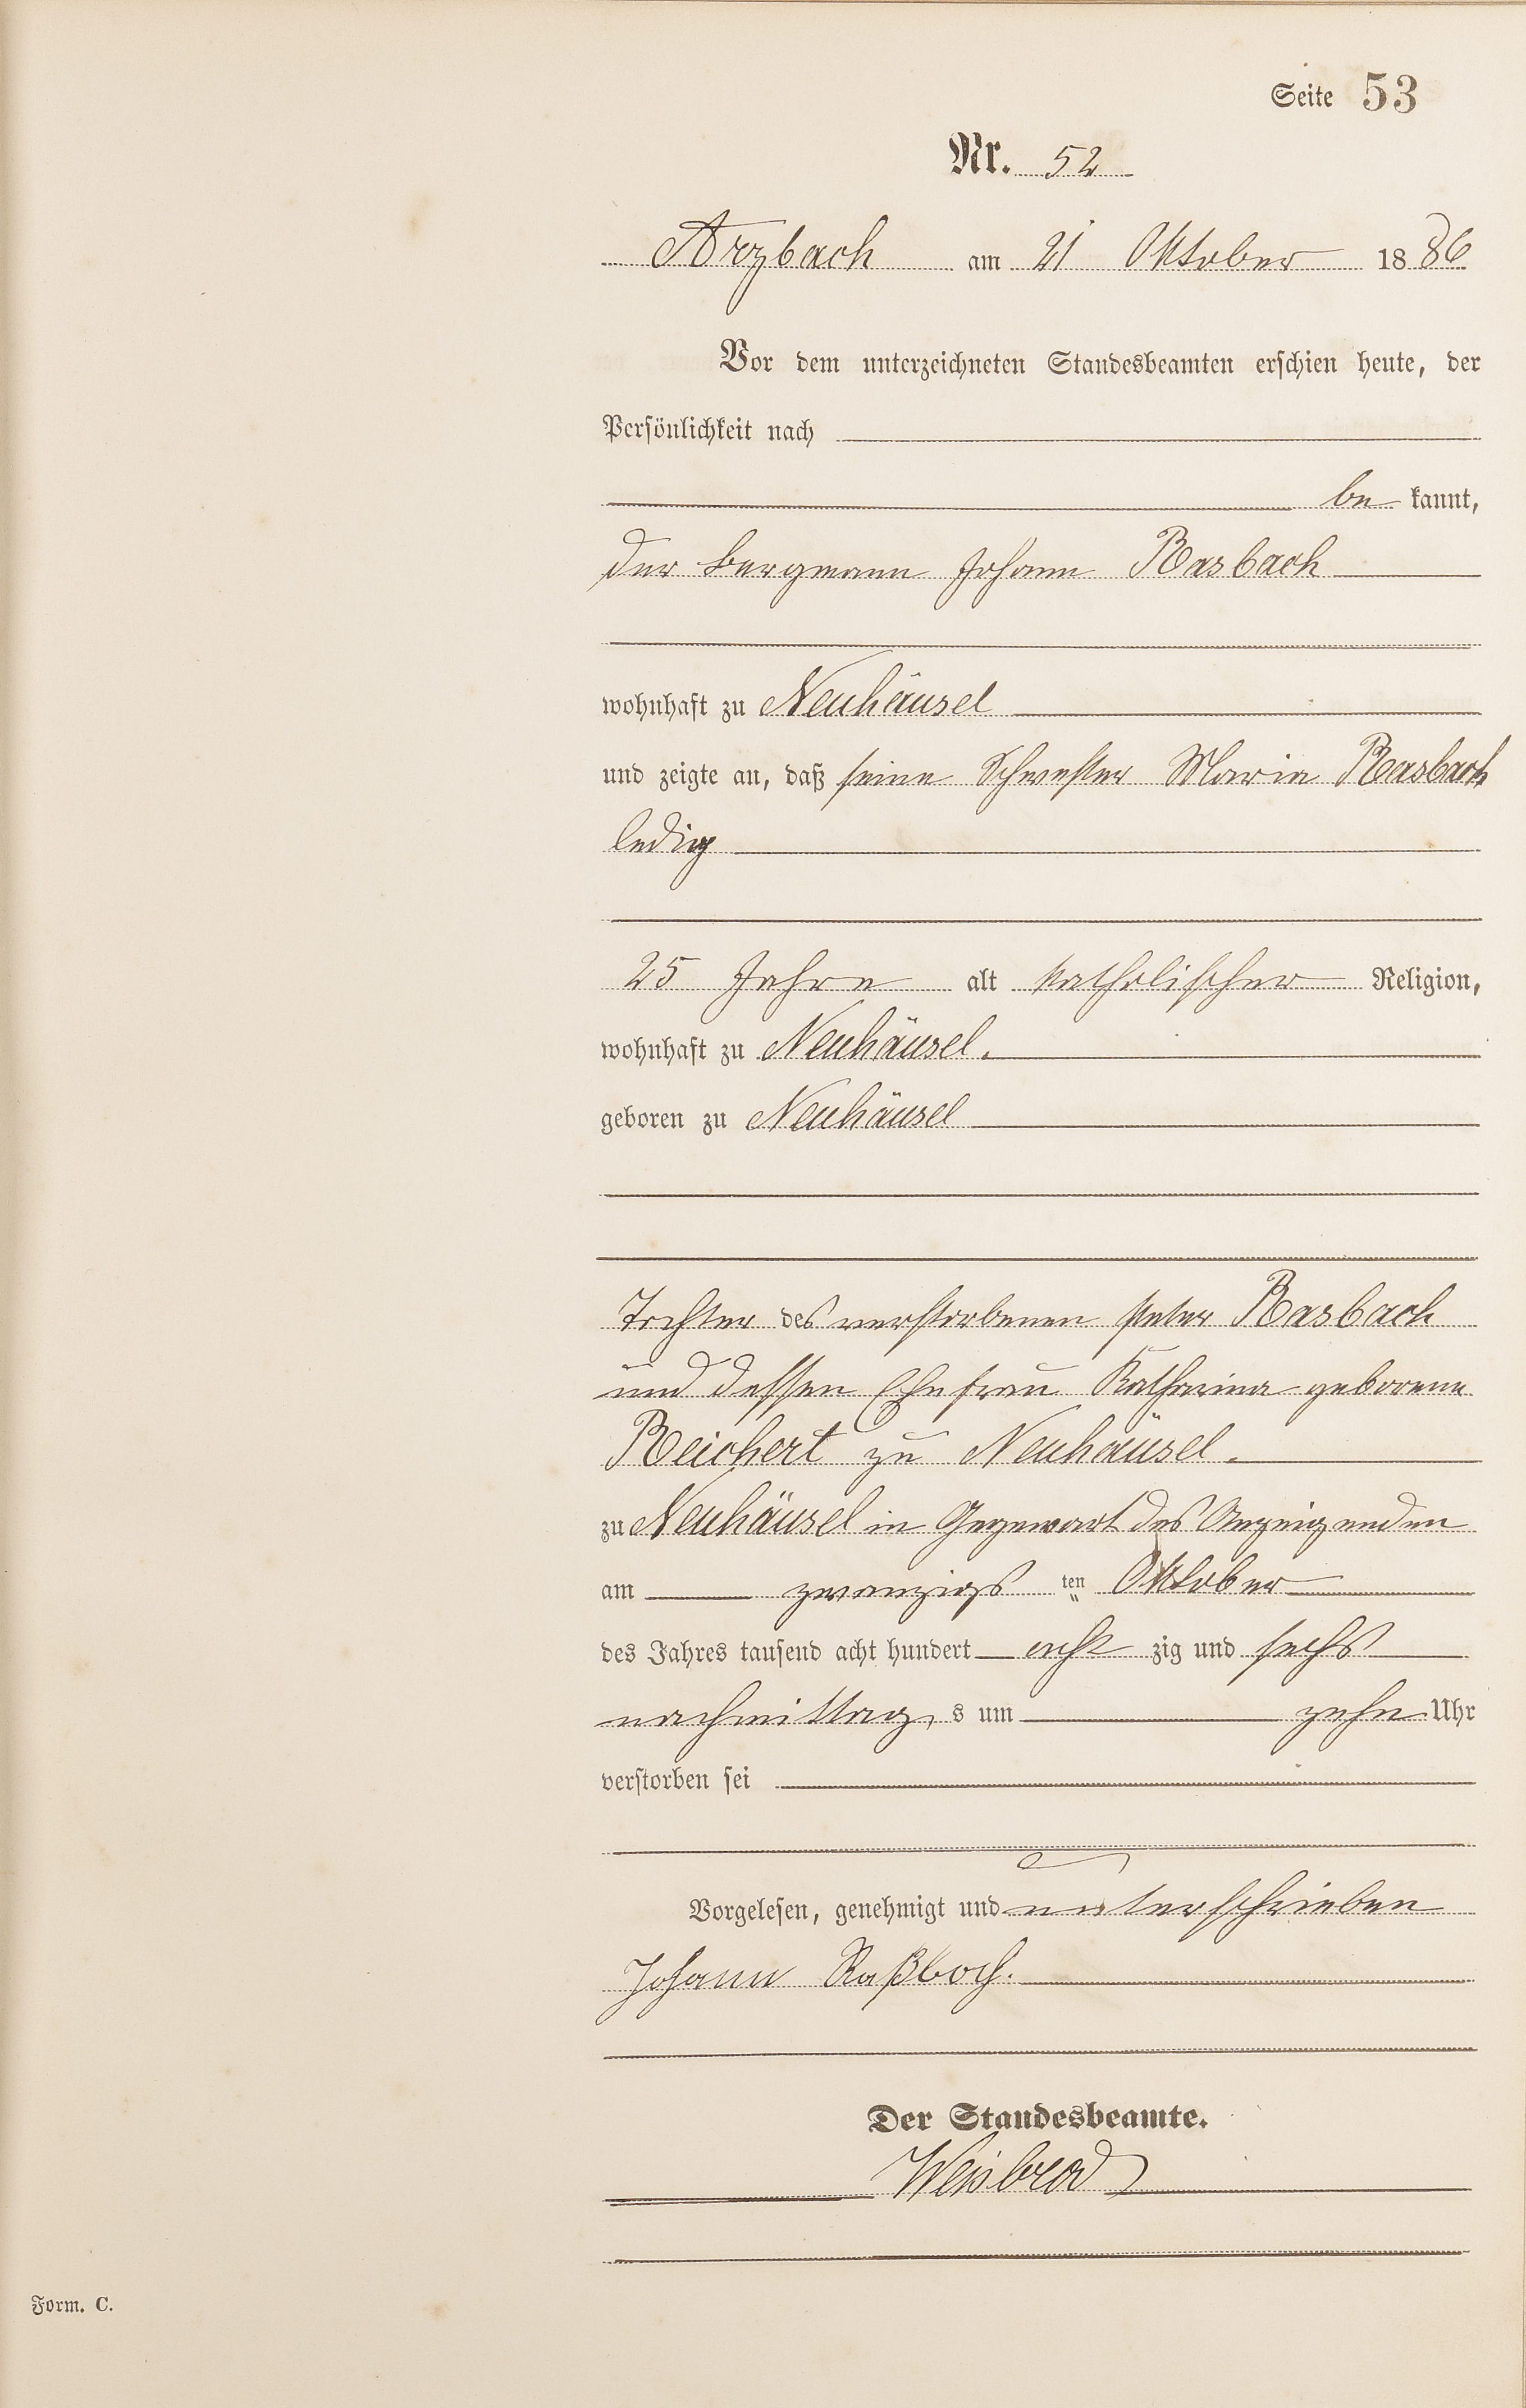 Seite 53
Nr. 52
Arzbach am 21 Oktober 1886
Vor dem unterzeichneten Standesbeamten erschien heute, der
Persönlichkeit nach
be kannt,
der Bergmann Johann Rasbach
wohnhaft zu Neuhäusel
und zeigte an, daß seine Schwester Maria Rasbach
ledig
25 Jahre alt katholischer Religion,
wohnhaft zu Neuhäusel.
geboren zu Neuhäusel
Tochter des verstorbenen Peter Rasbach
und dessen Ehefrau Katharina geborene
Reichert zu Neuhäusel.
zu Neuhäusel in Gegenwart des Anzeigenden
am zwanzigs ten Oktober
des Jahres tausend acht hundert acht zig und sechs
nachmittag s um zehn Uhr
verstorben sei
Vorgelesen, genehmigt und unterschrieben
Johann Raßbach.
Der Standesbeamte.
Weisbrod
Form. C.